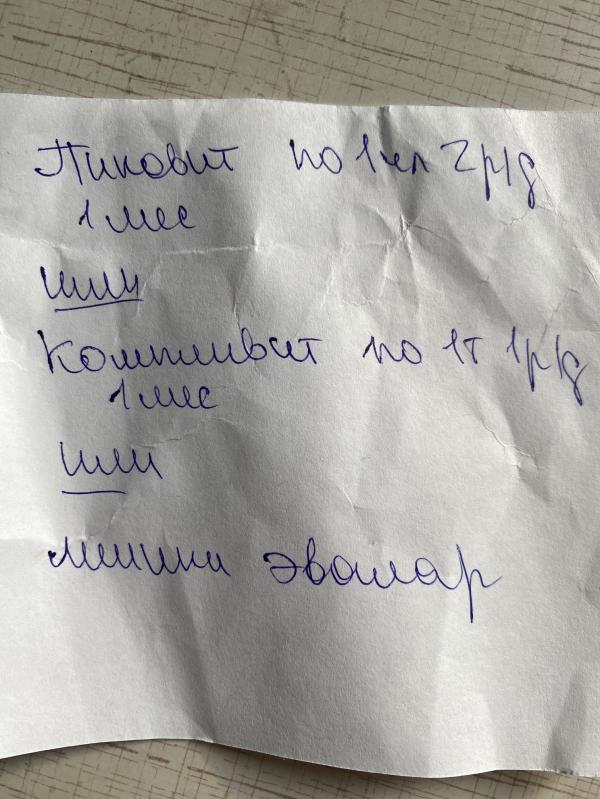 Пиковит по 1чл 2р/д
1 мес
или
Компливит по 1т 1р/д
1 мес
или
мишки эвалар